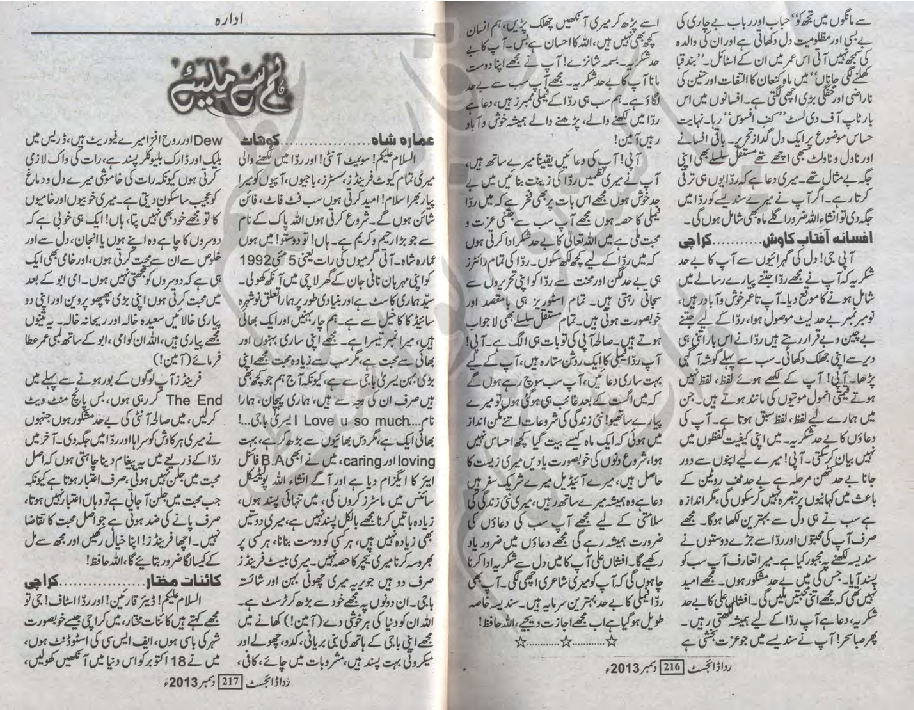 سے مانگوں میں تجھ کو" حباب اور رباب بے چاری کی
بے بسی اور مظلومیت دل دکھاتی ہے اور ان کی والدہ
کی سمجھ نہیں آتی اس عمر میں ان کے اسٹائل۔ "بند قبا
کھلنے لگی جاناں" میں ماہ کنعان کا التفات اور حنین کی
ناراضی اور خفگی بڑی اچھی لگتی ہے۔ افسانوں میں اس
بار ٹاپ آف دی لسٹ "کف افسوس" رہا۔ نہایت
حساس موضوع پر ایک دل گداز تحریر۔ باقی افسانے
اور ناول و ناولٹ بھی اچھے تھے مستقل سلسلے بھی اپنی
جگہ بے مثال تھے۔ میری دعا ہے کہ ردا یوں ہی ترقی
کرتا رہے۔ اگر آپ نے میرے سندیسے کو ردا میں
جگہ دی تو انشاء اللہ ضرور اگلے ماہ بھی شامل ہوں گی۔
افسانہ آفتاب کاوش............کراچی
آپی جی! دل کی گہرائیوں سے آپ کا بے حد
شکریہ کہ آپ نے مجھے ردا جتنے پیارے رسالے میں
شامل ہونے کا موقع دیا۔ آپ تا عمر خوش و آباد رہیں،
نومبر نمبر بے حد لیٹ موصول ہوا، ردا کے لیے جتنے
بے چین و بے قرار رہتے ہیں ردا نے اس بار اتنی ہی
دیر سے اپنی جھلک دکھائی۔ سب سے پہلے گوشہ آگہی
پڑھا۔ آپی! آپ کے لکھے ہوئے لفظ، لفظ نہیں
ہوتے قیمتی انمول موتیوں کی مانند ہوتے ہیں۔ جن
میں ہمارے لیے لفظ، لفظ سبق ہوتا ہے۔ آپ کی
دعاؤں کا بے حد شکریہ۔ میں اپنی کیفیت لفظوں میں
نہیں بیان کر سکتی۔ آپی! میرے لیے اپنوں سے دور
جانا بے حد کٹھن مرحلہ ہے بے حد ٹف روٹین کے
باعث میں کہانیوں پر تبصرہ نہیں کر سکوں گی، مگر اندازہ
ہے سب نے ہی دل سے بہترین لکھا ہوگا۔ مجھے
صرف آپ کی محبتوں اور ردا سے جڑے دوستوں نے
سندیسہ لکھنے پہ مجبور کیا ہے۔ میرا تعارف آپ سب کو
پسند آیا۔ جس کی میں بے حد مشکور ہوں۔ مجھے امید
نہیں تھی کہ مجھے اتنی محبتیں ملیں گی۔ افشاں علی کا بے حد
شکریہ، دعا ہے آپ ردا کے لیے ہمیشہ لکھتی رہیں۔
پھر صبا سحر! آپ نے سندیسے میں جو عزت بخشی ہے
اسے پڑھ کر میری آنکھیں چھلک پڑیں، ہم انسان
کچھ بھی نہیں ہیں، اللہ کا احسان ہے بس۔ آپ کا بے
حد شکریہ۔ بسمہ شانزے! آپ نے مجھے اپنا دوست
مانا آپ کا بے حد شکریہ۔ مجھے آپ سب سے بے حد
لگاؤ ہے۔ ہم سب ہی ردا کے فیملی ممبرز ہیں، دعا ہے
ردا میں لکھنے والے، پڑھنے والے ہمیشہ خوش و آباد
رہیں آمین!
آپی! آپ کی دعائیں یقیناً میرے ساتھ ہیں،
آپ نے میری نظمیں ردا کی زینت بنائیں میں بے
حد خوش ہوں مجھے اس بات پر بھی فخر ہے کہ میں ردا
فیملی کا حصہ ہوں مجھے آپ سب سے جتنی عزت و
محبت ملی ہے میں اللہ تعالیٰ کا بے حد شکر ادا کرتی ہوں
کہ میں ردا کے لیے کچھ لکھ سکوں۔ ردا کی تمام رائٹرز
ہی بے حد لگن اور محنت سے ردا کو اپنی تحریروں سے
سجاتی رہتی ہیں۔ تمام اسٹوریز ہی با مقصد اور
خوبصورت ہوتی ہیں۔ تمام مستقل سلسلے بھی لاجواب
ہوتے ہیں۔ صالحہ آپی کی تو بات ہی الگ ہے۔ آپی!
آپ ردا فیملی کا ایک روشن ستارہ ہیں، آپ کے لیے
بہت ساری دعائیں، آپ سب سوچ رہے ہوں گے
کہ میں اگست کے بعد غائب ہی ہوگئی ہوں تو میرے
پیارے ساتھیو! نئی زندگی کی شروعات اتنے مگن انداز
میں ہوئی کہ ایک ماہ کیسے بیت گیا کچھ احساس نہیں
ہوا، شروع دنوں کی خوبصورت یادیں میری زیست کا
حاصل ہیں، میرے آئیڈیل میرے شریک سفر ہیں
دعا ہے وہ ہمیشہ میرے ساتھ رہیں، میری نئی زندگی کی
سلامتی کے لیے مجھے آپ سب کی دعاؤں کی
ضرورت ہمیشہ رہے گی مجھے دعاؤں میں ضرور یاد
رکھیے گا۔ افشاں علی آپ کا میں دل سے شکریہ ادا کرنا
چاہوں گی کہ آپ کو میری شاعری اچھی لگی۔ آپ بھی
ردا فیملی کا بے حد بہترین سرمایہ ہیں۔ سندیسہ خاصہ
طویل ہو گیا ہے اب مجھے اجازت دیجیے، اللہ حافظ!
☆............☆............☆
ردا ڈائجسٹ 216 دسمبر 2013ء
ادارہ
ان سے ملیئے
عمارہ شاہ................کوهاٹ
السلام علیکم! سویٹ آنٹی! اور ردا میں لکھنے والی
میری تمام کیوٹ فرینڈز، سسٹرز، باجیوں، آپیوں کو میرا
پیار بھرا سلام! امید کرتی ہوں سب فٹ فاٹ، فائن
شائن ہوں گے۔ شروع کرتی ہوں اللہ پاک کے نام
سے جو بڑا رحیم و کریم ہے۔ ہاں! تو دوستو! میں ہوں
عمارہ شاہ۔ آتی گرمیوں کی رات یعنی 5 مئی 1992
کو اپنی مہربان نانی جان کے گھر لاچی میں آنکھ کھولی۔
سید ہماری کاسٹ ہے اور بنیادی طور پر ہمارا تعلق نوشہرہ
سائیڈ کا کاخیل سے ہے۔ ہم چار بہنیں اور ایک بھائی
ہیں، میرا نمبر تیسرا ہے۔ مجھے اپنی ساری بہنوں اور
بھائی سے محبت ہے، مگر سب سے زیادہ محبت مجھے اپنی
بڑی بہن یسریٰ باجی سے ہے، کیونکہ آج ہم جو کچھ بھی
ہیں صرف ان کی وجہ سے ہیں، ہماری پہچان، ہمارا
نام...I Love u so much یسریٰ باجی...!
بھائی ایک ہے، مگر دس بھائیوں سے بڑھ کر ہے، بہت
loving اور caring، میں نے ابھی B.A فائنل
ایئر کا ایگزام دیا ہے اور آگے انشاء اللہ پولیٹیکل
سائنس میں ماسٹرز کروں گی، میں تنہائی پسند ہوں،
زیادہ باتیں کرنا مجھے بالکل پسند نہیں ہے، میری دوستیں
بھی زیادہ نہیں ہیں، ہر کسی کو دوست بنانا، ہر کسی پر
بھروسہ کرنا میری نیچر کا حصہ نہیں۔ میری بیسٹ فرینڈز
صرف دو ہیں جویریہ میری چھوٹی بہن اور شائستہ
باجی۔ ان دونوں پہ مجھے خود سے بڑھ کر ٹرسٹ ہے۔
اللہ ان کو دنیا کی ہر خوشی دے (آمین!) کھانے میں
مجھے اپنی باجی کے ہاتھ کی بنی بریانی، کدو، چھولے اور
میکرونی بہت پسند ہیں، مشروبات میں چائے، کافی،
Dew اور روح افزا میرے فیورٹ ہیں، ڈریس میں
بلیک اور ڈارک بلیو کلر پسند ہے، رات کی واک لازمی
کرتی ہوں کیونکہ رات کی خاموشی میرے دل و دماغ
کو عجیب سا سکون دیتی ہے۔ میری خوبیوں اور خامیوں
کا تو مجھے خود بھی نہیں پتا، ہاں! ایک ہی خوبی ہے کہ
دوسروں کا چاہے وہ اپنے ہوں یا انجان، دل سے اور
خلوص سے ان سے محبت کرتی ہوں، اور خامی بھی ایک
ہی ہے کہ دوسروں کو سمجھتی نہیں ہوں۔ امی ابو کے بعد
میں محبت کرتی ہوں اپنی بڑی پھپھو پروین اور اپنی دو
پیاری خالائیں سعیدہ خالہ اور ریحانہ خالہ۔ یہ تینوں
مجھے پیاری ہیں، اللہ ان کو امی، ابو کے ساتھ لمبی عمر عطا
فرمائے (آمین!)
فرینڈز آپ لوگوں کے بور ہونے سے پہلے میں
The End کر رہی ہوں، بس پانچ منٹ ویٹ
کرلیں، میں صالحہ آنٹی کی بے حد مشکور ہوں جنہوں
نے میری ہر کاوش کو سراہا اور ردا میں جگہ دی۔ آخر میں
ردا کے ذریعے میں یہ پیغام دینا چاہتی ہوں کہ اصل
محبت میں جلن نہیں ہوتی، صرف اعتبار ہوتا ہے کیونکہ
جب محبت میں جلن آجاتی ہے تو وہاں اعتبار نہیں ہوتا،
صرف پانے کی ضد ہوتی ہے جو اصل محبت کا تقاضا
نہیں۔ اچھا فرینڈز! اپنا خیال رکھیں اور مجھ سے مل
کے کیسا لگا ضرور بتائیے گا، اللہ حافظ!
کائنات مختار................کراچی
السلام علیکم! ڈیئر قارئین! اور ردا اسٹاف! جی تو
مجھے کہتے ہیں کائنات مختار، میں کراچی جیسے خوبصورت
شہر کی باسی ہوں، ایف ایس سی کی اسٹوڈنٹ ہوں،
میں نے 18 اکتوبر کو اس دنیا میں آنکھیں کھولیں،
ردا ڈائجسٹ 217 دسمبر 2013ء